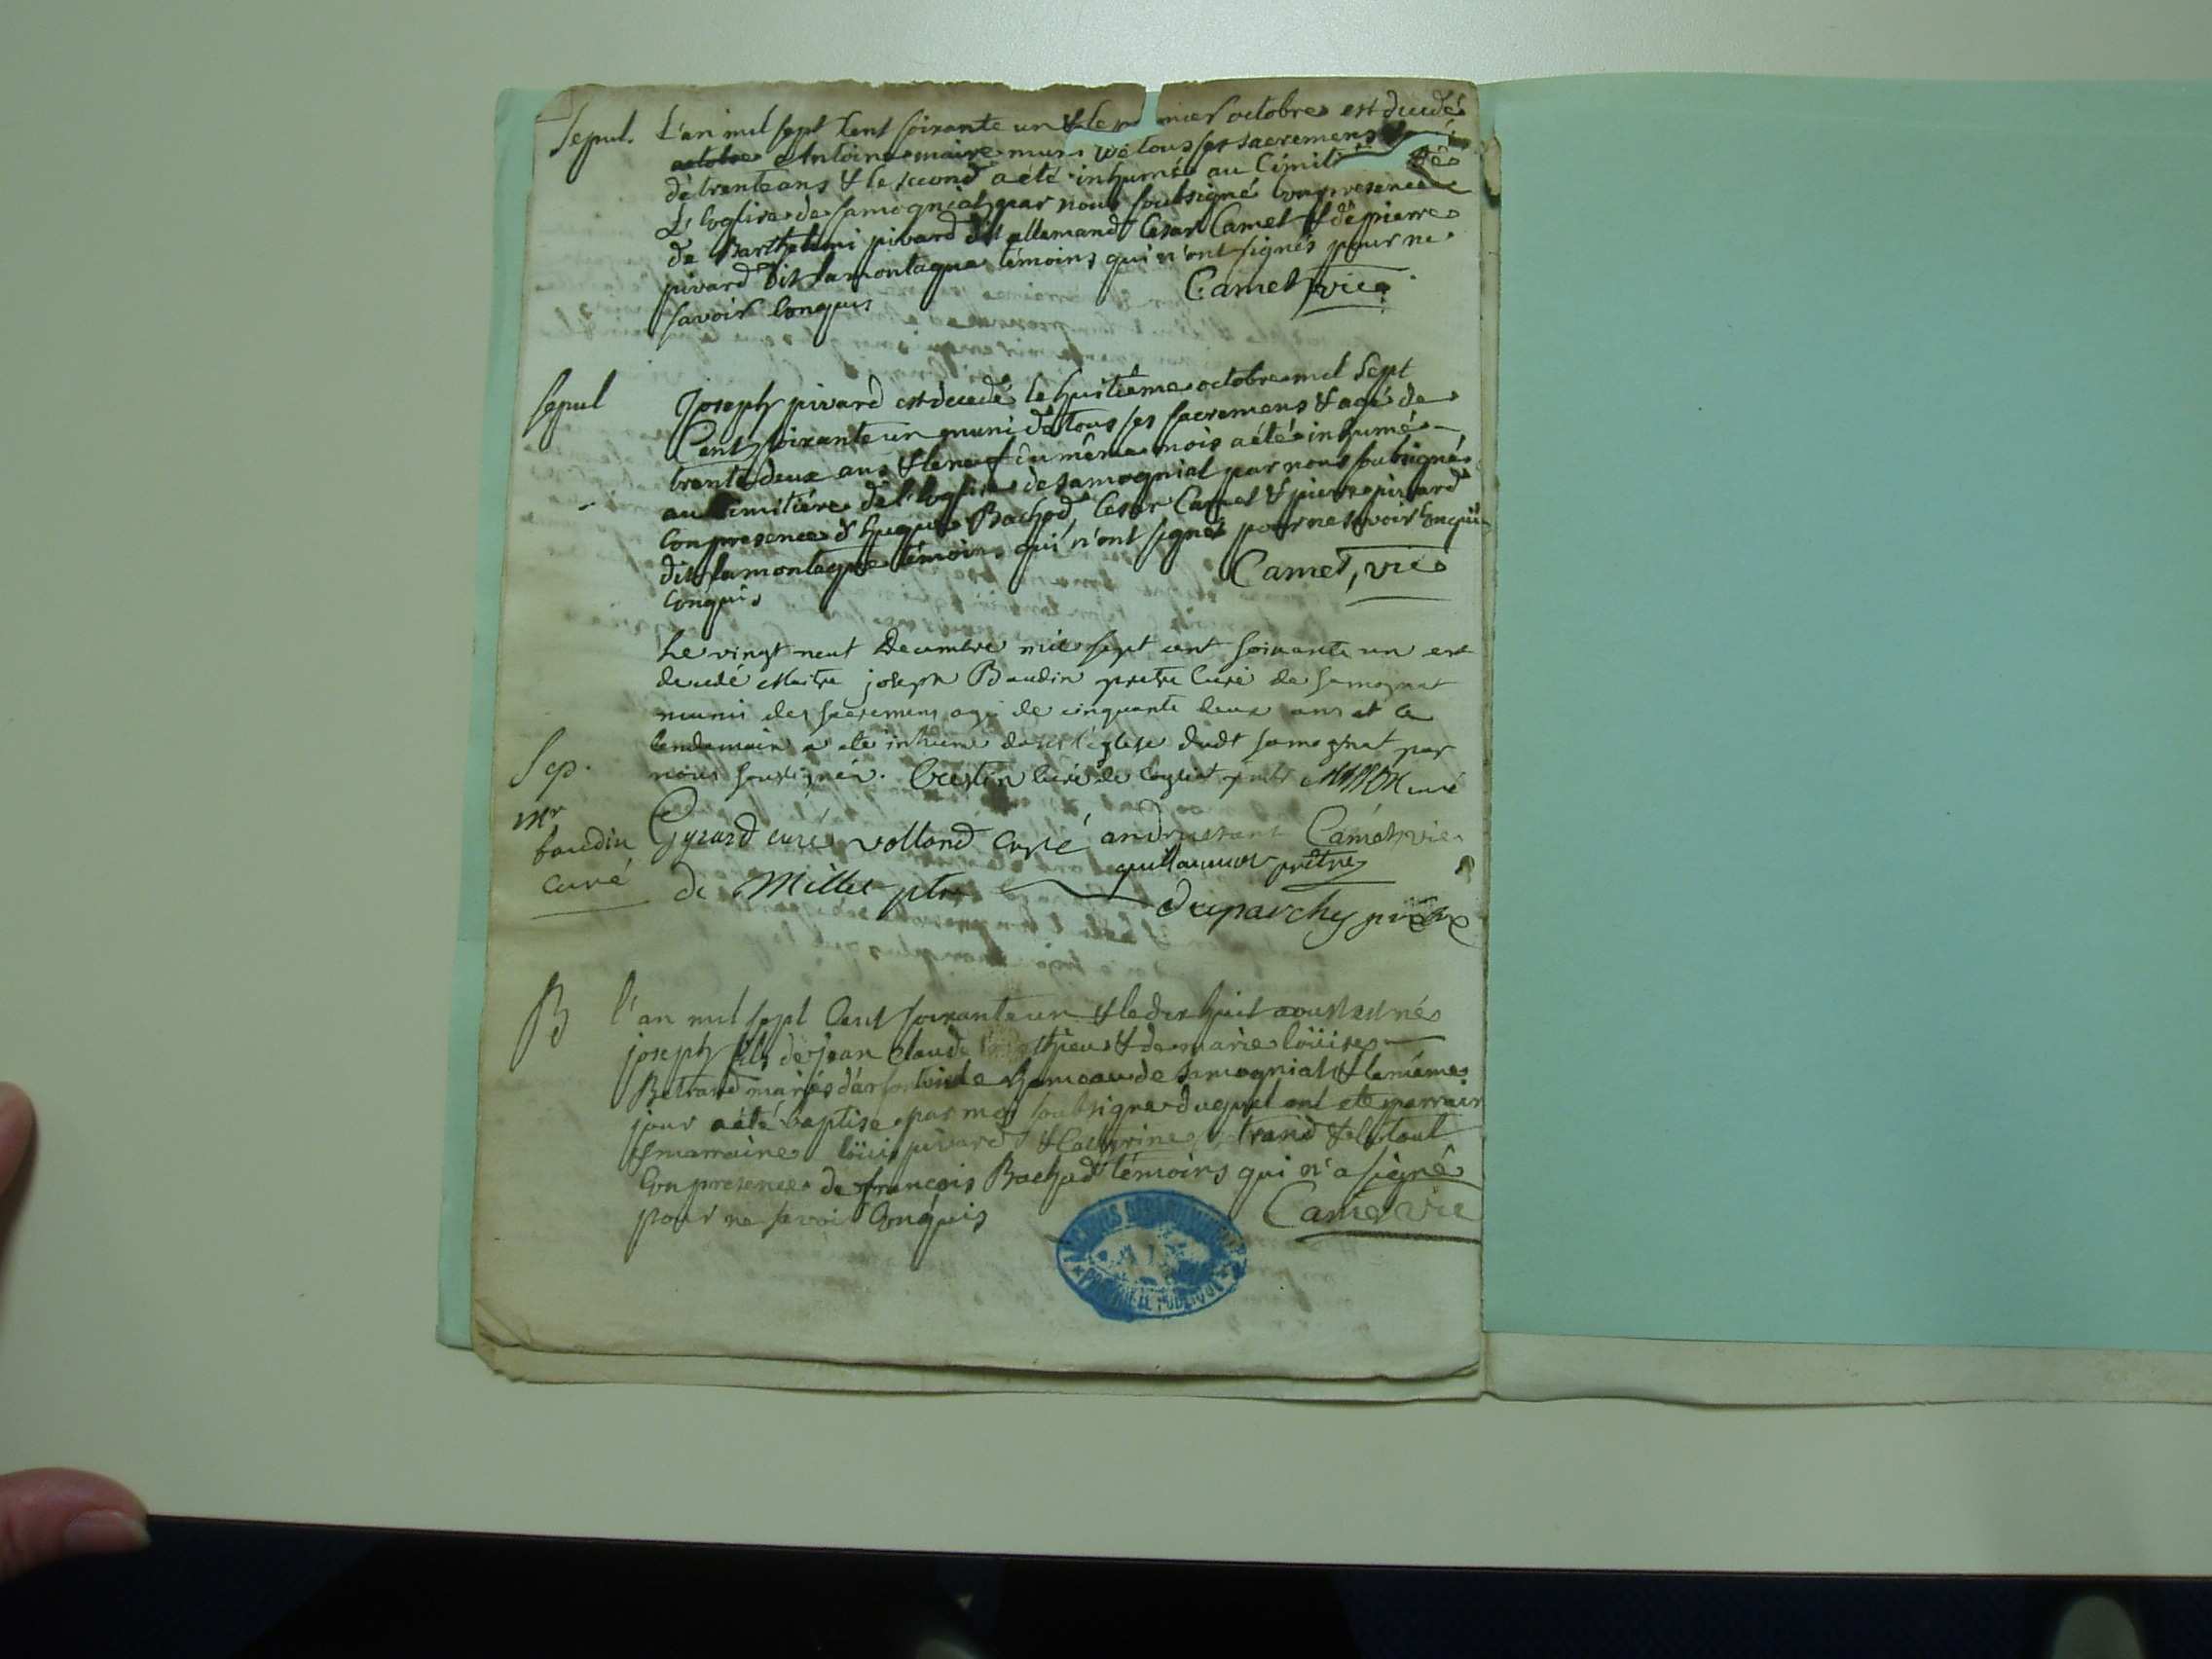 Sepul. L'an mil sept Cent soixante un & le mier octobre est decedé
octobre Antoine maire mun de tous ses sacremens
de trente ans & le second a été inhumé au Cimiti
de l'eglise de samogniat par nous soubsigné en presence
de Barthelemi pivard dit allemand Cesar Camet & de pierre
pivard dit lamontagne témoins qui n'ont signés pour ne
savoir enquis Camet, vic.
Sepul Joseph pivard est decedé le huitième octobre mil sept
Cent soixante un muni de tous ses sacremens & agé de
trente deux ans & le neuf du même mois a été inhumé
au Cimitière de l'eglise de samogniat par nous soubsigné
en presence d'hugue Bachod Cesar Camet & pierre pivard
dit lamontagne témoins qui n'ont signés pour ne savoir enquis
enquis Camet, vic
Le vingt neuf Decembre mil sept cent soixante un est
decedé Maitre joseph Baudin pretre Curé de Samognat
munis des sacremens agé de cinquante deux ans et le
lendemain a eté inhumé dans l'église dudt samognat par
Sep. nous soussignés. Crestin curé de curé
Mr
baudin
Curé
Gyrard curé volland curé Camet vic
guillaumot prêtre
de Millet ptre
Duparchy prêtre
B l'an mil sept Cent soixante un & le dix huit aoust est né
joseph fils de jean Claude & de marie loüise
Betrand mariés d'arfontaine hameau de samogniat & le même
jour a été baptisé par moy soubsigné duquel ont eté parrain
& marraine loüis pivard & Catherine trand & le tout
en presence de françois Bachod témoins qui n'a signé
pour ne savoir enquis Camet vic
ARCHIVES DÉPARTEMENTALES
PROPRIÉTÉ PUBLIQUE